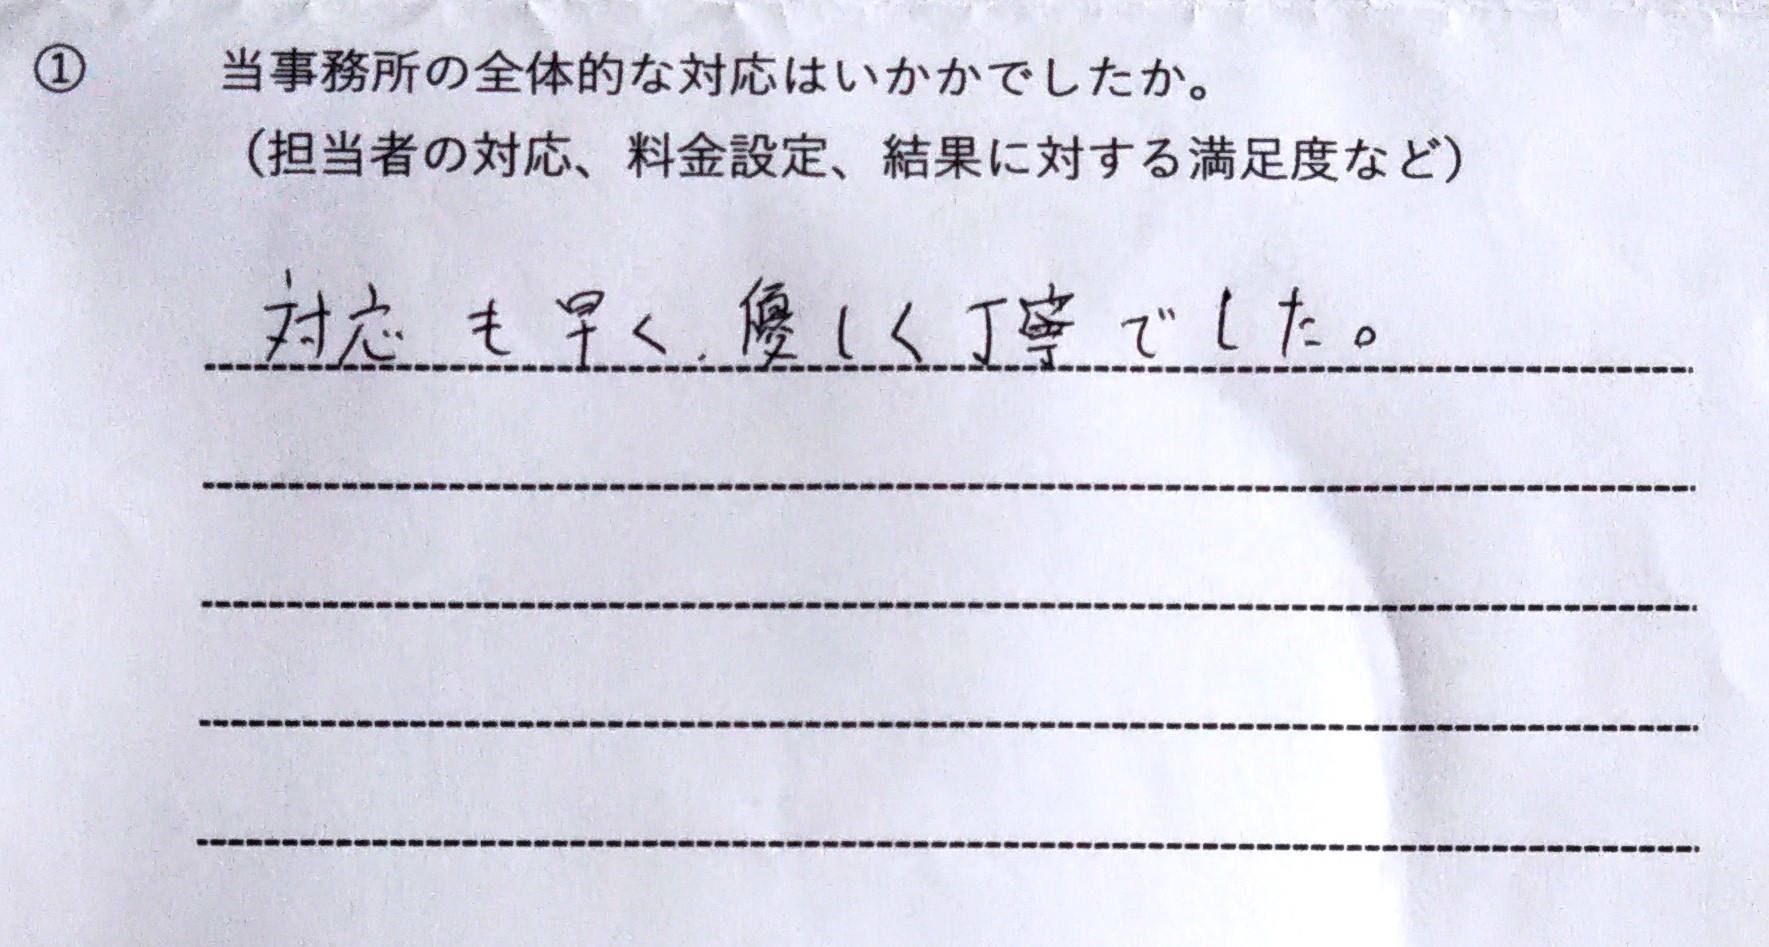 ① 当事務所の全体的な対応はいかかでしたか。
（担当者の対応、料金設定、結果に対する満足度など）
対応も早く、優しく丁寧でした。